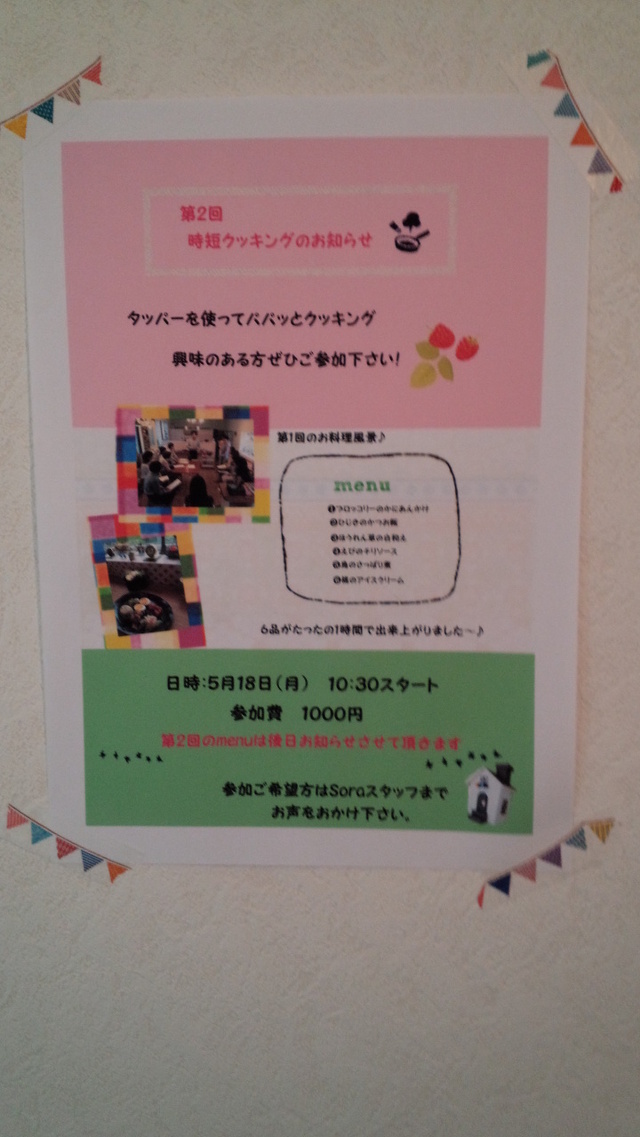 第2回
時短クッキングのお知らせ
タッパーを使ってパパッとクッキング
興味のある方ぜひご参加下さい!
第1回のお料理風景♪
menu
❶ブロッコリーのかにあんかけ
❷ひじきのかつお飯
❸ほうれん草の白和え
❹えびのチリソース
❺鳥のさっぱり煮
のアイスクリーム
6品がたったの1時間で出来上がりました～♪
日時:5月18日(月) 10:30スタート
参加費 1000円
第2回のmenuは後日お知らせさせて頂きます
参加ご希望方はSoraスタッフまで
お声をおかけ下さい。